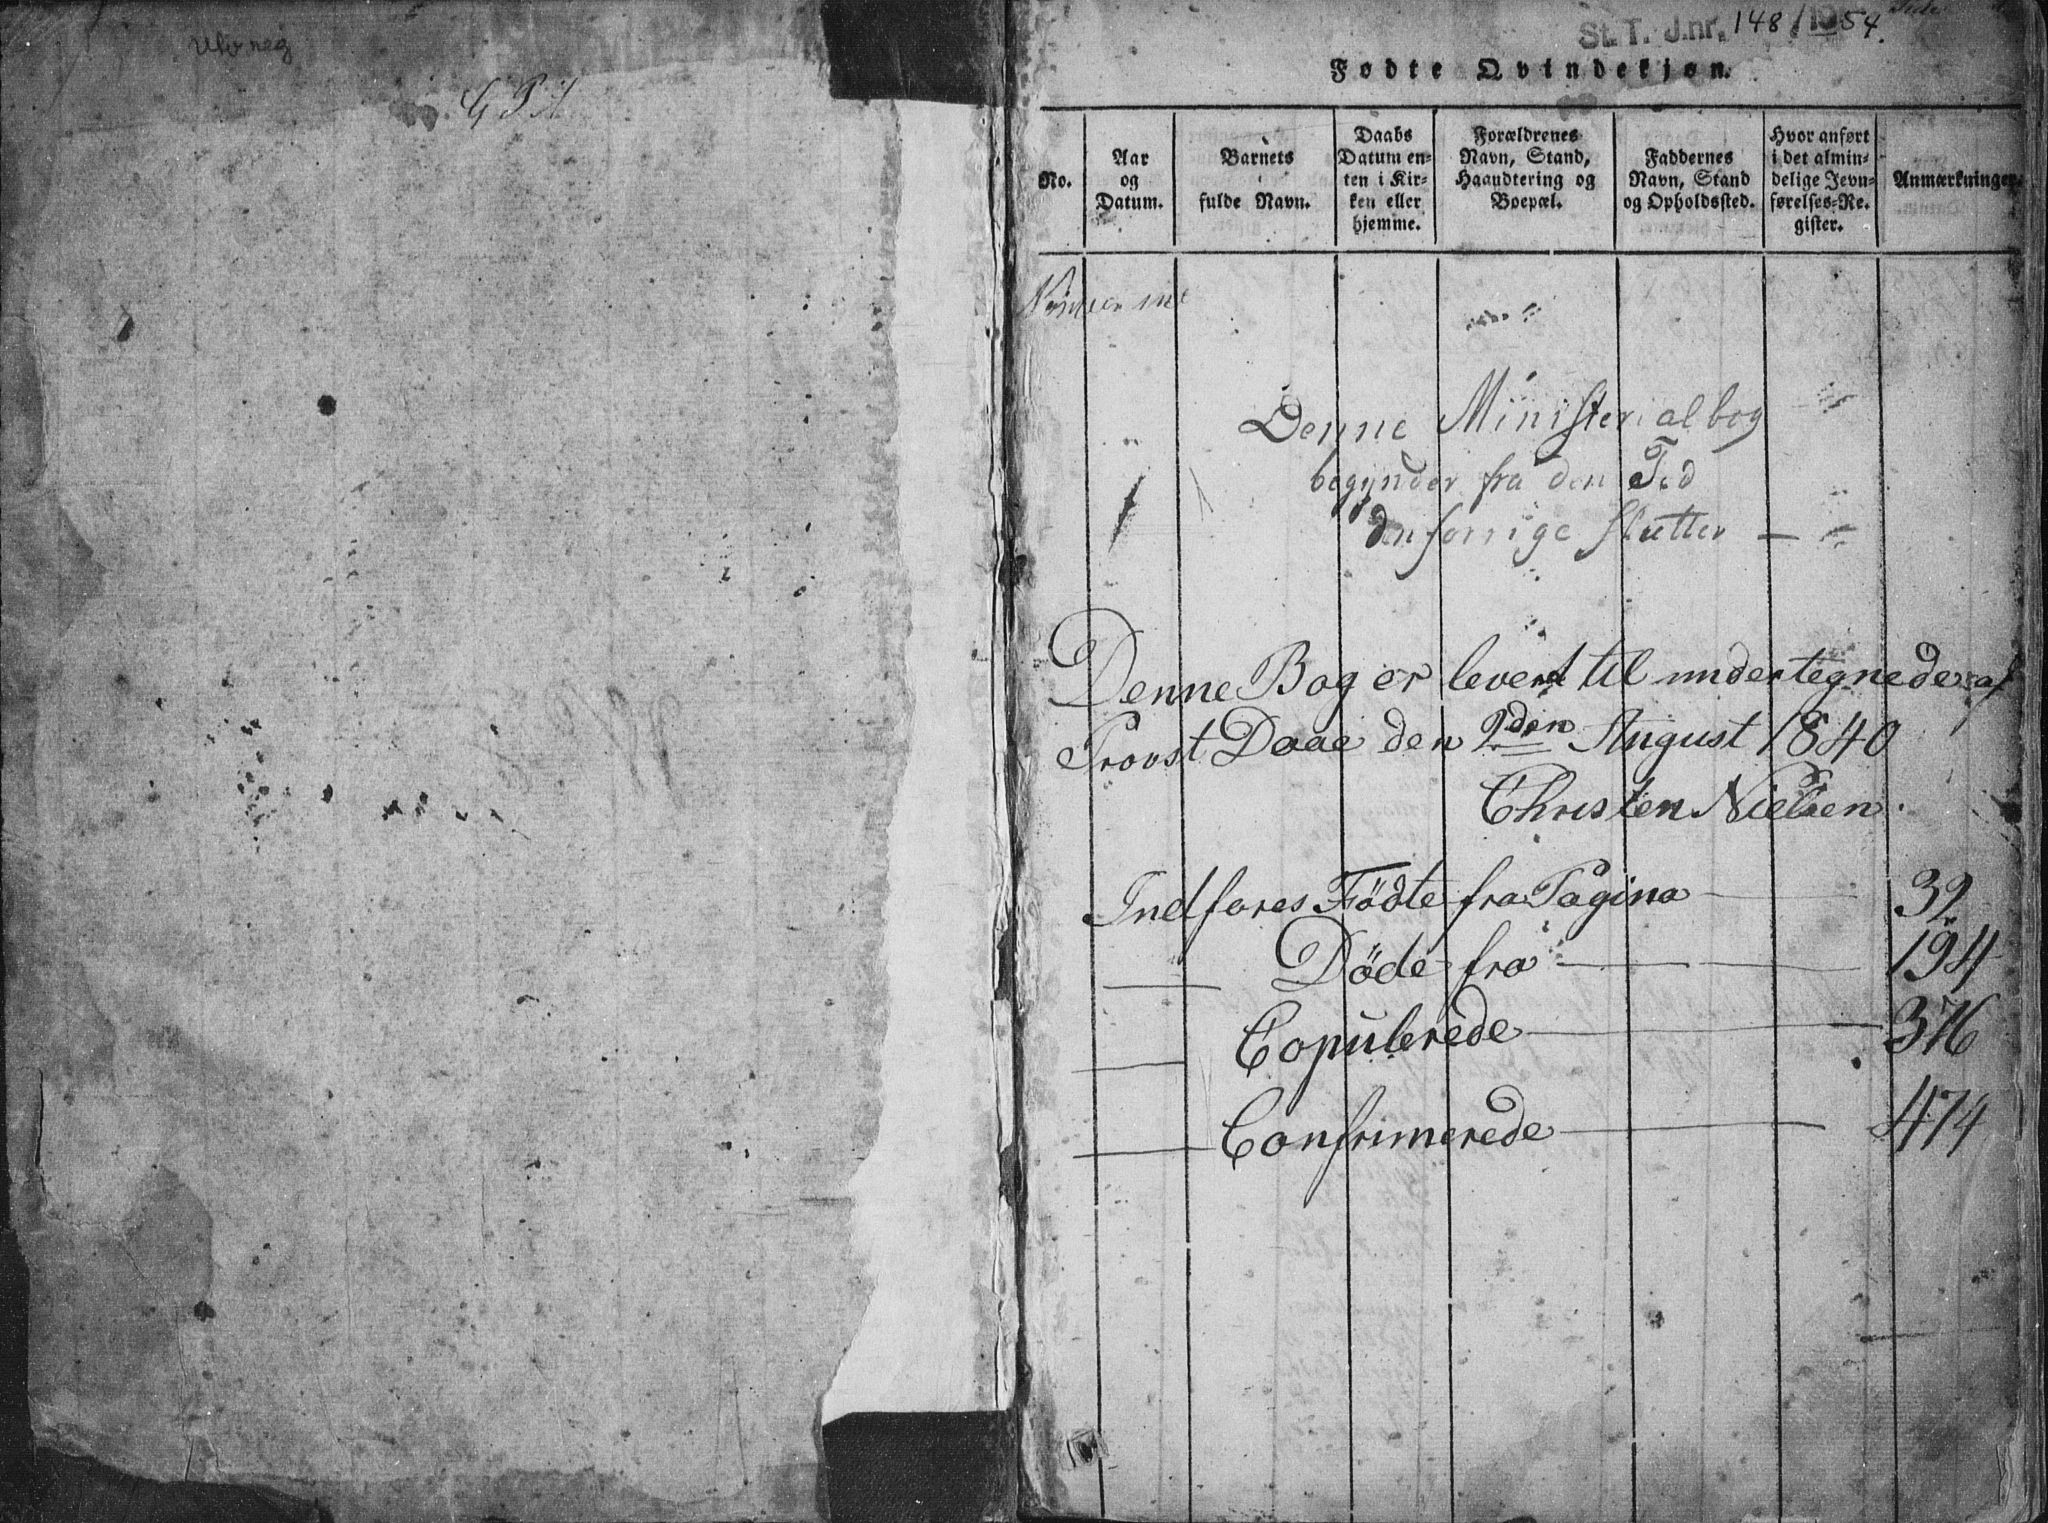 St. T. J.nr. 148/1954.
Fødte Qvindekjøn.
No.
Aar
og
Datum.
Barnets
fulde Navn.
Daabs
Datum en-
ten i Kir-
ken eller
hjemme.
Forældrenes
Navn, Stand,
Haandtering og
Boepæl.
Faddernes
Navn, Stand
og Opholdssted.
Hvor anført
i det almin-
delige Jevn-
førelses-Re-
gister.
Anmærkninger.
Denne Ministerialbog
begynder fra den Tid
den forrige slutter —
Denne Bog er levert til undertegnede af
Provst Daae den 2den August 1840
Christen Nielsen.
Indføres Födte fra Pagina — 39
— Döde fra — 194
— Copulerede — 376
— Confrimerede — 474